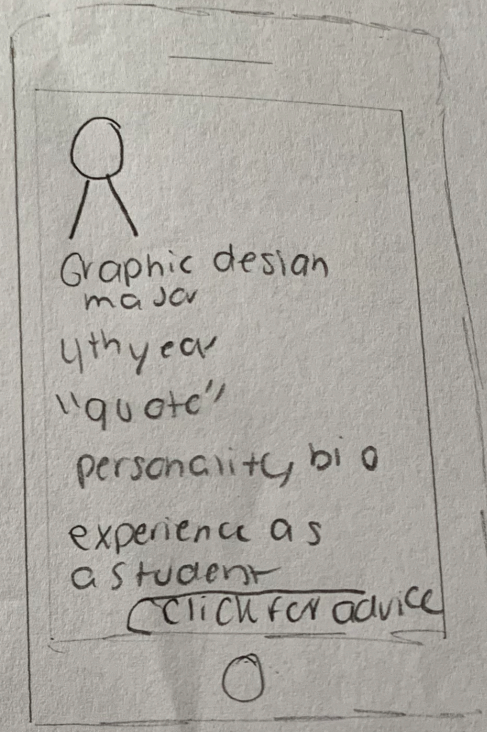 Graphic design
major
4th year
"quote"
personality bio
experience as
a student
click for advice